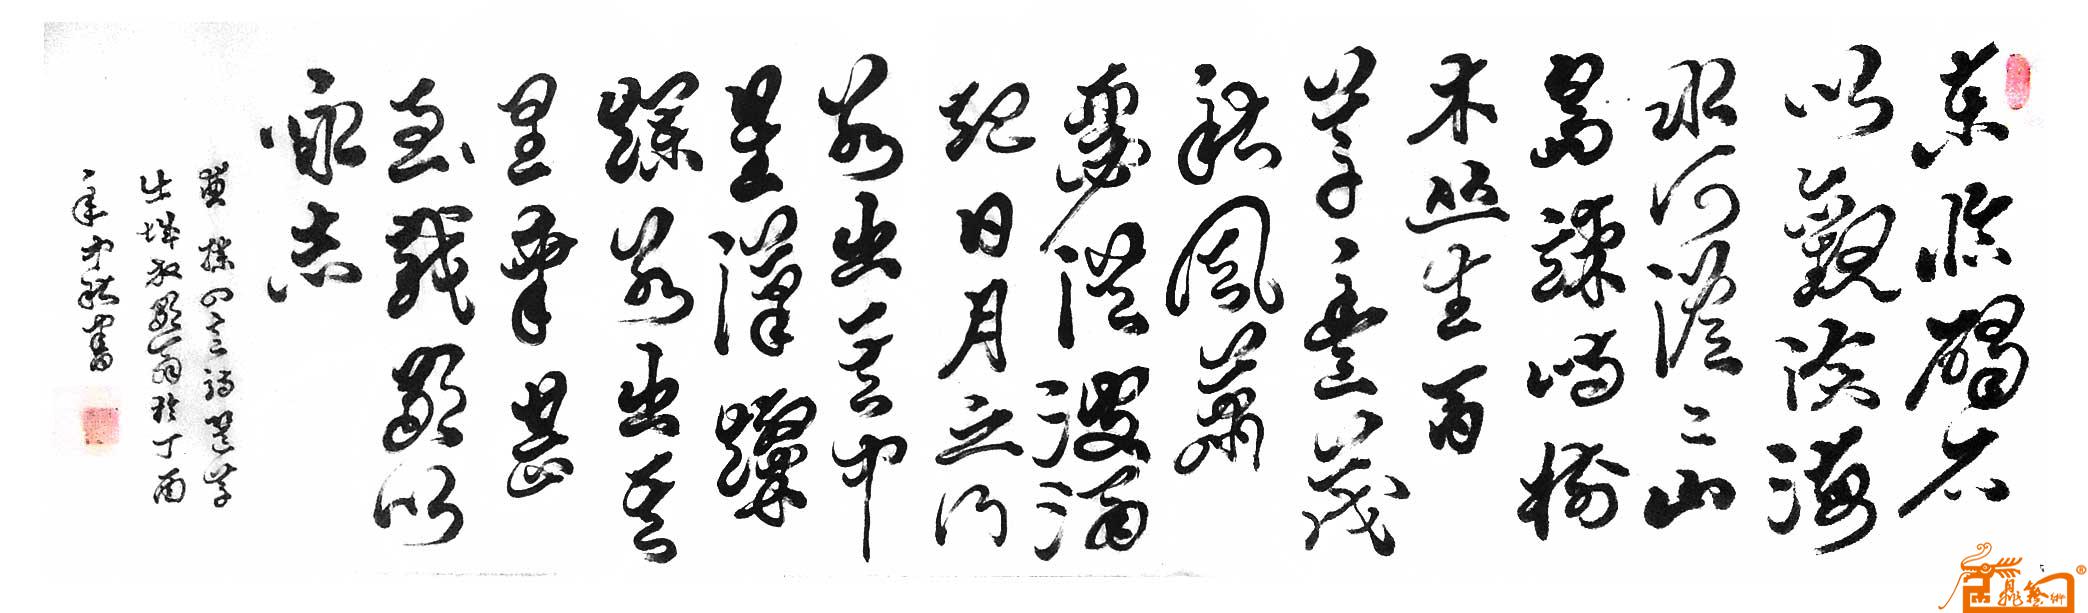 東臨碣石
以觀滄海
水何澹〻山
島竦峙樹
木丛生百
草豐茂
秋風蕭
瑟洪波涌
起日月之行
若出其中
星漢燦
爛若出其
里幸甚
至哉歌以
詠志
曹操四言詩
翁於丁酉
年中秋書